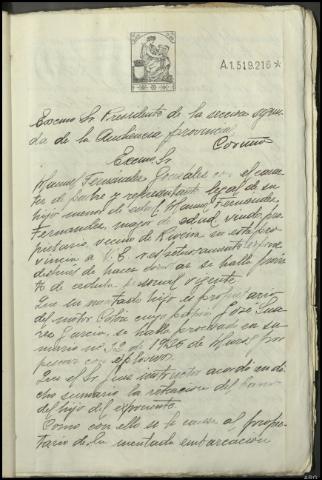 A1.519.216*
Excmo Sr. Presidente de la seccion segun-
da de la Audiencia provincial
Coruña
Excmo Sr
Manuel Fernández González con el carac-
ter de padre y representante legal de su
hijo menor de edad Manuel Fernández
Fernández, mayor de edad viudo, pro-
pietario, vecino de Riveira en esta pro-
vincia a V.E. respetuosamente expone
despues de hacer constar se halla provis-
to de cedula personal vigente.
Que su mentado hijo es propietario
del motor Colón cuyo patrón José Sua-
rez Garcia, se halla procesado en su-
mario no 32 de 1926 de Muros por
pescar con explosivos.
Que el Sr Juez instructor acordó en di-
cho sumario la retencion del barco
del hijo del exponente.
Como con ello se le causa al propie-
tario de la mentada embarcación